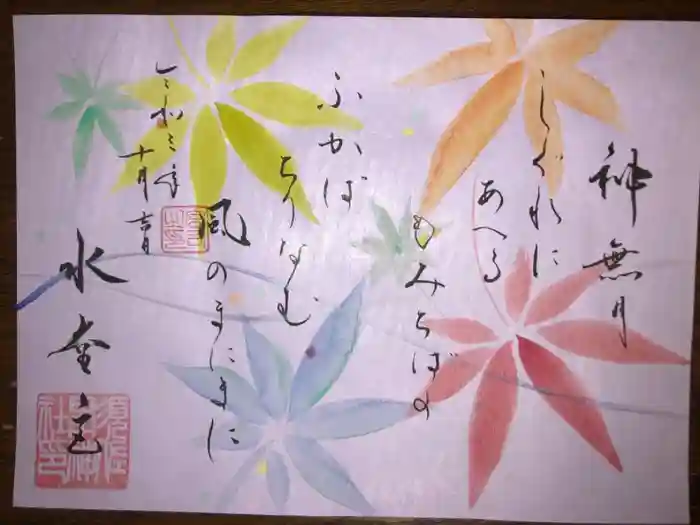 神無月
しぐれに
あへる
もみぢばの
ふかば
ちりなむ
風のまにまに
令和三年
十月吉日